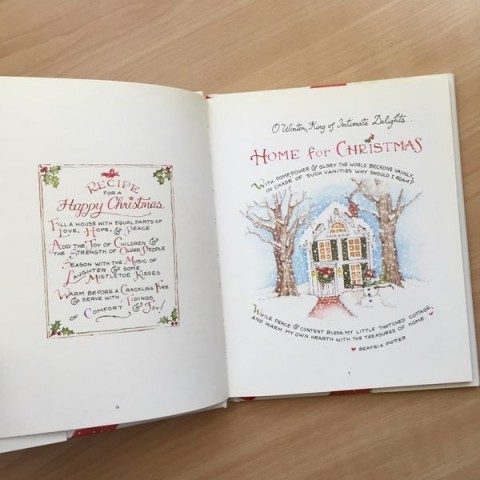 RECIPE
FOR A
Happy Christmas.
FILL A HOUSE WITH EQUAL PARTS OF
LOVE, HOPE, & PEACE
ADD THE JOY OF CHILDREN &
THE STRENGTH OF OLDER PEOPLE
SEASON WITH THE MUSIC OF
LAUGHTER & SOME
MISTLETOE KISSES
WARM BEFORE A CRACKLING FIRE
& SERVE WITH TIDINGS
OF COMFORT & JOY!
6
O Winter, King of Intimate Delights...
HOME for CHRISTMAS
WITH POMP, POWER & GLORY THE WORLD BECKONS VAINLY,
IN CHASE OF SUCH VANITIES WHY SHOULD I ROAM?
WHILE PEACE & CONTENT BLESS MY LITTLE THATCHED COTTAGE,
AND WARM MY OWN HEARTH WITH THE TREASURES OF HOME.
BEATRIX POTTER
7